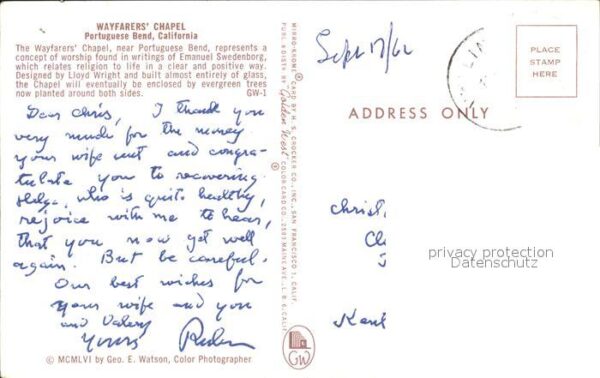 WAYFARERS' CHAPEL
Portuguese Bend, California
The Wayfarers' Chapel, near Portuguese Bend, represents a
concept of worship found in writings of Emanuel Swedenborg,
which relates religion to life in a clear and positive way.
Designed by Lloyd Wright and built almost entirely of glass,
the Chapel will eventually be enclosed by evergreen trees
now planted around both sides. GW-1
Dear Chris, I thank you
very much for the money
your wife sent and congra-
tulate you to recovering.
Helga, who is quite healthy,
rejoice with me to hear,
that you now get well
again. But be careful.
Our best wishes for
your wife and you
and Valery
Yours
© MCMLVI by Geo. E. Watson, Color Photographer
MIRRO-KROME® CARD BY H. S. CROCKER CO., INC., SAN FRANCISCO, CALIF.
PUBL. & DIST. BY Golden West® COLOR CARD CO., MAIN AVE., L. B. 6, CALIF.
GW
Sept
ADDRESS ONLY
PLACE
STAMP
HERE
privacy protection
Datenschutz